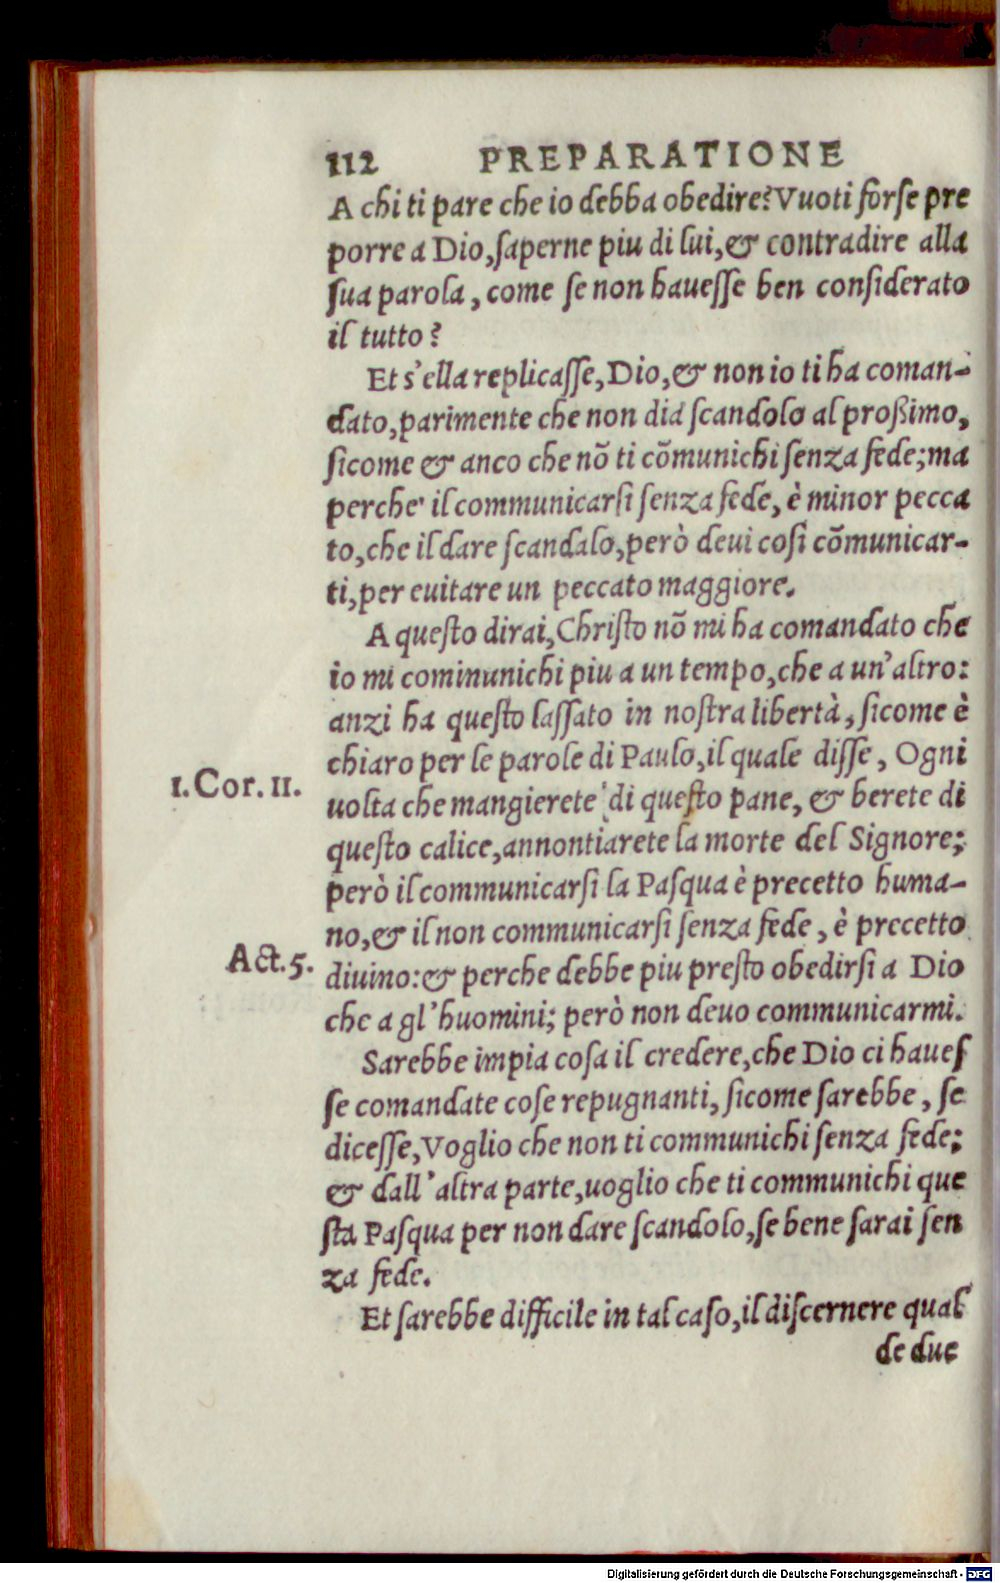 112 PREPARATIONE
A chi ti pare che io debba obedire? Vuoti forse pre
porre a Dio, saperne piu di lui, & contradire alla
sua parola, come se non hauesse ben considerato
il tutto?
Et s'ella replicasse, Dio, & non io ti ha coman-
dato, parimente che non dia scandolo al proßimo,
sicome & anco che nõ ti cõmunichi senza fede; ma
perche il communicarsi senza fede, è minor pecca
to, che il dare scandalo, però deui cosi cõmunicar-
ti, per euitare un peccato maggiore.
A questo dirai, Christo nõ mi ha comandato che
io mi cominunichi piu a un tempo, che a un'altro:
anzi ha questo lassato in nostra libertà, sicome è
chiaro per le parole di Paulo, il quale disse, Ogni
1. Cor. 11.
uolta che mangierete di questo pane, & berete di
questo calice, annontiarete la morte del Signore;
però il communicarsi la Pasqua è precetto huma-
no, & il non communicarsi senza fede, è precetto
Act. 5.
diuino: & perche debbe piu presto obedirsi a Dio
che a gl'huomini; però non deuo communicarmi.
Sarebbe impia cosa il credere, che Dio ci haues
se comandate cose repugnanti, sicome sarebbe, se
dicesse, Voglio che non ti communichi senza fede;
& dall'altra parte, uoglio che ti communichi que
sta Pasqua per non dare scandolo, se bene sarai sen
za fede.
Et sarebbe difficile in tal caso, il discernere qual
de due
Digitalisierung gefördert durch die Deutsche Forschungsgemeinschaft - DFG